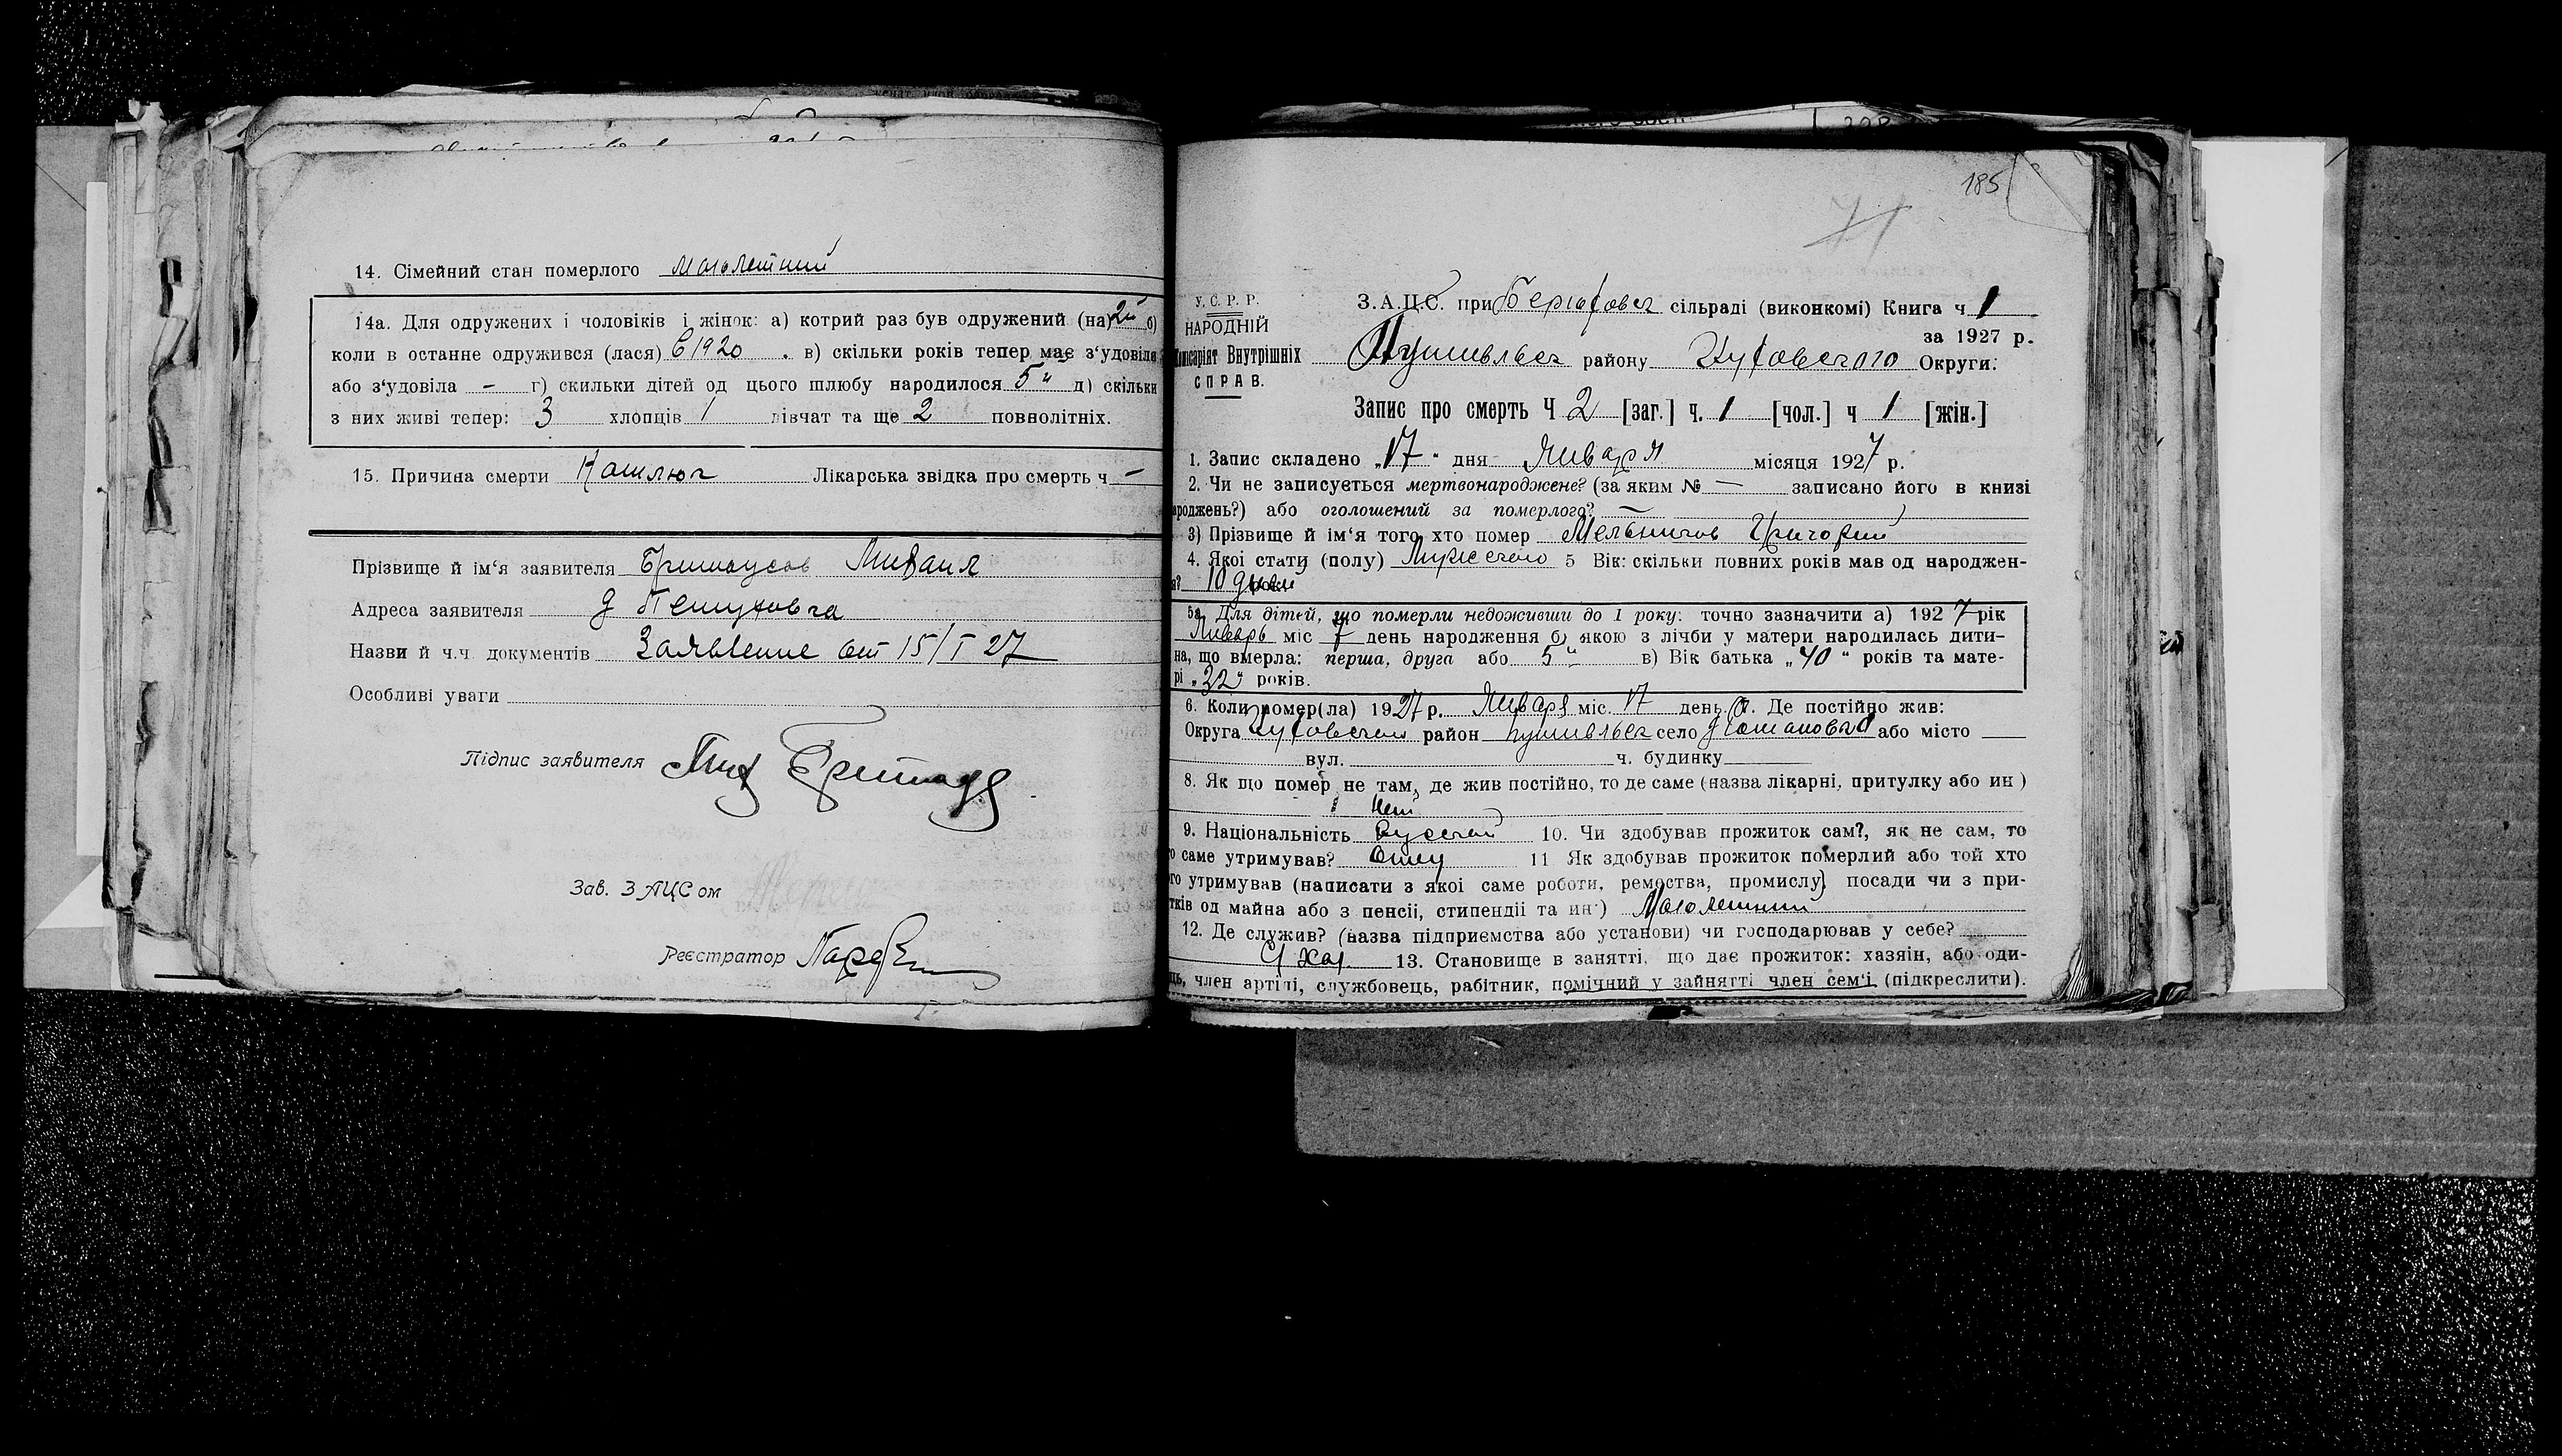 14. Сімейний стан померлого малолетний
14а. Для одружених і чоловіків і жінок: а) котрий раз був одружений (на) 2й б)
коли в останне одружився (лася) в 1920 . в) скільки років тепер має з‘удовіла
або з‘удовіла – г) скильки дітей од цього шлюбу народилося 5" д) скільки
з них живі тепер: 3 хлопців 1 дівчат та ще 2 повнолітніх.
15. Причина смерти Кашлюк Лікарська звідка про смерть ч –
Прізвище й ім‘я заявителя Бритоусов Михаил
Адреса заявителя д
Назви й ч.ч. документів Заявление от 15/I 27
Особливі уваги
Підпис заявителя Мих
Зав. ЗАЦС ом
Реєстратор
185
71
У. С. Р. Р.
НАРОДНІЙ
Комісаріят Внутрішніх
СПРАВ.
З.А.Ц.С. при сільраді (виконкомі) Книга ч 1
за 1927 р.
Путивльск району Глуховского Округи.
Запис про смерть Ч 2 [заг.] ч. 1 [чол.] ч 1 [жін.]
1. Запис складено „17" дня Января місяця 1927 р.
2. Чи не записується мертвонароджене? (за яким № — записано його в книзі
народжень?) або оголошений за померлого? —
3) Прізвище й ім‘я того хто помер Мельников Григорий
4. Якої стати (полу) Мужского 5 Вік: скільки повних років мав од народжен-
я? 10 дней
5а. Для дітей, що померли недоживши до 1 року: точно зазначити а) 1927 рік
Январь міс 7 день народження б) якою з лічби у матери народилась дити-
на, що вмерла: перша, друга або 5" в) Вік батька „40" років та мате-
рі „32" років.
6. Коли помер(ла) 1927 р. Января міс. 17 день. 7. Де постійно жив:
Округа Глуховского район Путивльск село або місто —
вул. ч. будинку
8. Як що помер не там, де жив постійно, то де саме (назва лікарні, притулку або ин )
Нет
9. Національність Русский 10. Чи здобував прожиток сам?, як не сам, то
то саме утримував? Отец 11 Як здобував прожиток померлий або той хто
го утримував (написати з якоі саме роботи, ремества, промислу) посади чи з при-
тків од майна або з пенсіі, стипендіі та ин·) Малолетний
12. Де служив? (назва підприємства або установи) чи господарював у себе?
С/хоз. 13. Становище в занятті, що дає прожиток: хазяін, або оди-
ць, член артілі, службовець, рабітник, помічний у зайнятті член сем‘і (підкреслити).